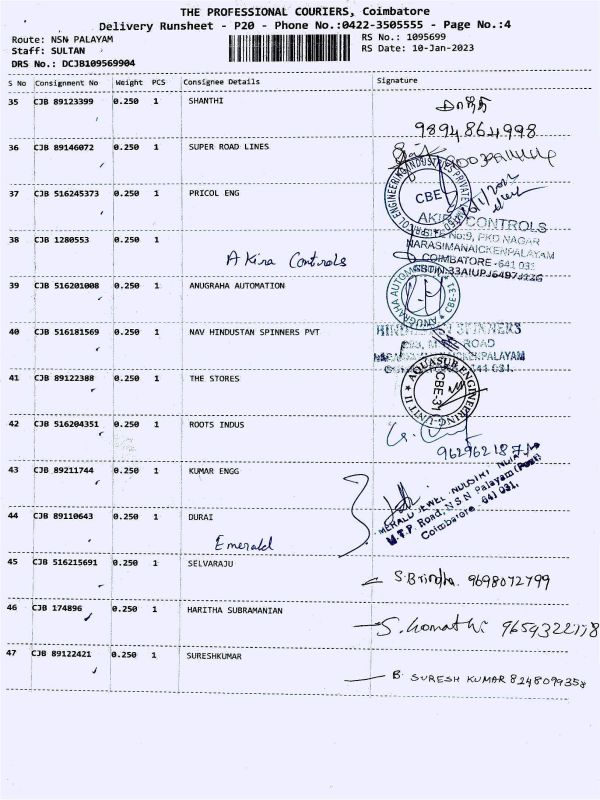 THE PROFESSIONAL COURIERS, Coimbatore
Delivery Runsheet - P20 - Phone No.:0422-3505555 - Page No.:4
Route: NSN PALAYAM
Staff: SULTAN
DRS No.: DCJB109569904
RS No.: 1095699
RS Date: 10-Jan-2023
S No Consignment No Weight PCS Consignee Details Signature
35 CJB 89123399 0.250 1 SHANTHI
9894864998
36 CJB 89146072 0.250 1 SUPER ROAD LINES
37 CJB 516245373 0.250 1 PRICOL ENG
CBE
38 CJB 1280553 0.250 1
Akira Controls
AKIRA CONTROLS
NARASIMANAICKENPALAYAM
COIMBATORE - 641 031
39 CJB 516201008 0.250 1 ANUGRAHA AUTOMATION
ANUGRAHA AUTOMATION
40 CJB 516181569 0.250 1 NAV HINDUSTAN SPINNERS PVT
SPINNERS
ROAD
41 CJB 89122388 0.250 1 THE STORES
AQUASUB ENGINEERING-UNIT II
CBE-31
42 CJB 516204351 0.250 1 ROOTS INDUS
43 CJB 89211744 0.250 1 KUMAR ENGG
44 CJB 89110643 0.250 1 DURAI
Emerald
M.T.P. Road, N S N Palayam (Post)
Coimbatore - 641 031.
45 CJB 516215691 0.250 1 SELVARAJU
S. Brindha. 9698072799
46 CJB 174896 0.250 1 HARITHA SUBRAMANIAN
S. Gomathi 9659322778
47 CJB 89122421 0.250 1 SURESHKUMAR
B. SURESH KUMAR 8248099358